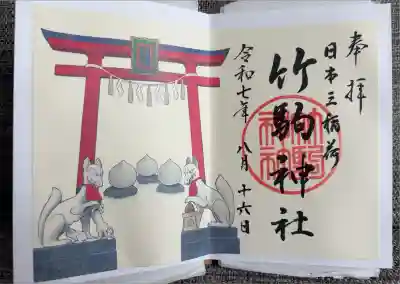 奉拝
日本三稲荷
竹駒神社
令和七年 八月 十六日